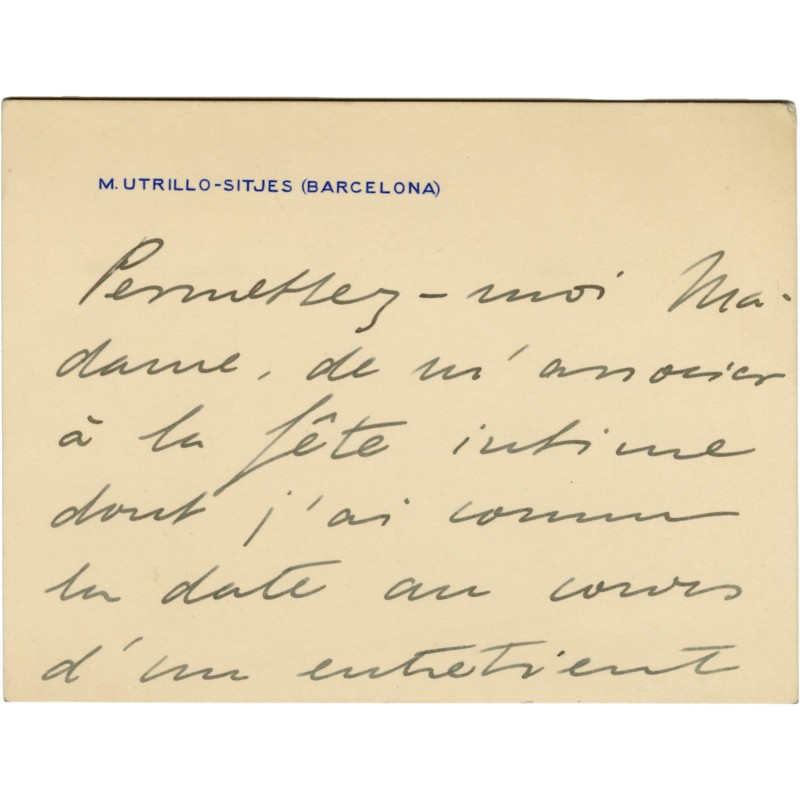 M. UTRILLO-SITJES (BARCELONA)
Permettez-moi Ma-
dame, de m'associer
à la fête intime
dont j'ai connu
la date au cours
d'un entretient